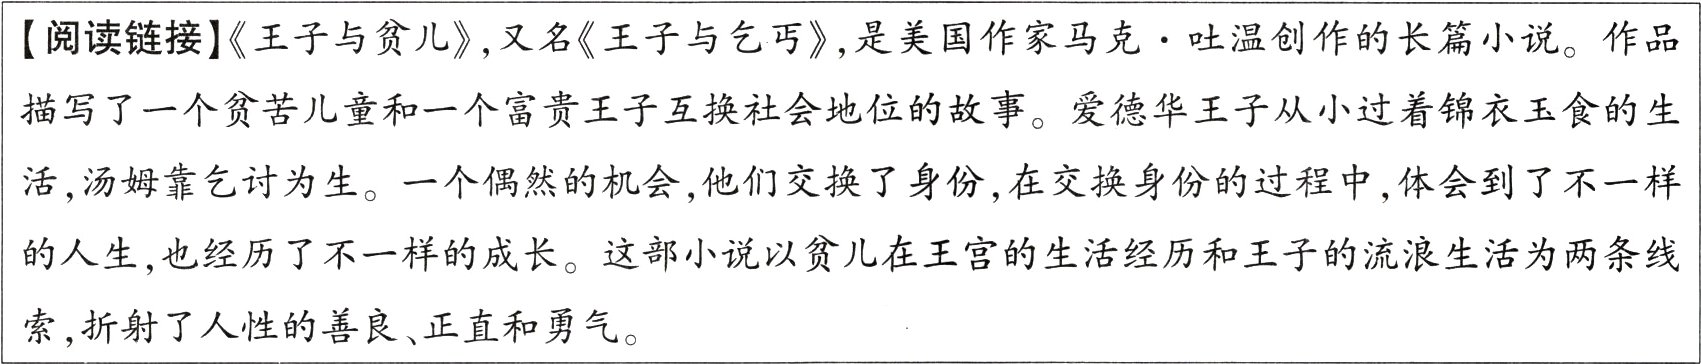 【阅读链接】《王子与贫儿》,又名《王子与乞丐》,是美国作家马克·吐温创作的长篇小说。作品
描写了一个贫苦儿童和一个富贵王子互换社会地位的故事。爱德华王子从小过着锦衣玉食的生
活,汤姆靠乞讨为生。一个偶然的机会,他们交换了身份,在交换身份的过程中,体会到了不一样
的人生,也经历了不一样的成长。这部小说以贫儿在王宫的生活经历和王子的流浪生活为两条线
索,折射了人性的善良、正直和勇气。